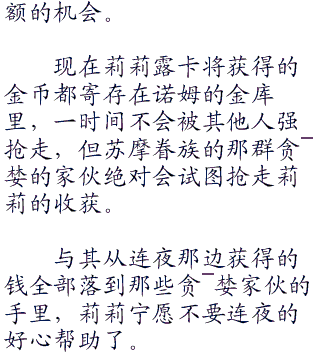 额的机会。
现在莉莉露卡将获得的
金币都寄存在诺姆的金库
里，一时间不会被其他人强
抢走，但苏摩眷族的那群贪¯
婪的家伙绝对会试图抢走莉
莉的收获。
与其从连夜那边获得的
钱全部落到那些贪¯婪家伙的
手里，莉莉宁愿不要连夜的
好心帮助了。